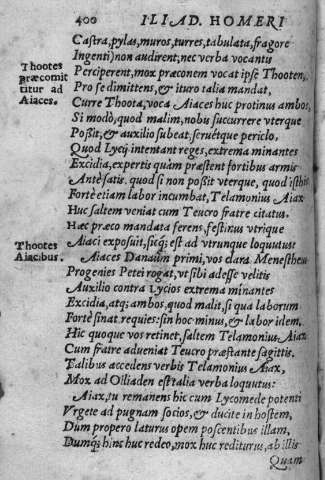 400 ILIAD. HOMERI
Castra, pylas, muros, turres, tabulata, fragore
Ingenti) non audirent; nec verba vocantis
Thootes
præcomit
titur ad
Aiaces.
Perciperent, mox præconem vocat ipse Thooten,
Pro se dimittens, & ituro talia mandat,
Curre Thoota, voca Aiaces huc protinus ambos,
Si modò, quod malim, nobis succurrere vterque
Possit, & auxilio subeat, seruétque periclo,
Quod Lycij intentant reges, extrema minantes
Excidia, expertis quàm præstent fortibus armis
Antè satis. quod si non possit vterque, quod isthic
Fortè etiam labor incumbat, Telamonius Aiax
Huc saltem veniat cum Teucro fratre citatus.
Hæc præco mandata ferens, festinus vtrique
Thootes
Aiacibus.
Aiaci exposuit, sicq; est ad vtrunque loquutus
Aiaces Danaûm primi, vos clara Menestheu
Progenies Petei rogat, vt sibi adesse velitis
Auxilio contra Lycios extrema minantes
Excidia, atq; ambos, quod malit, si qua laborum
Fortè sinat requies: sin hoc minus, & labor idem
Hic quoque vos retinet, saltem Telamonius Aiax
Cum fratre adueniat Teucro præstante sagittis.
Talibus accedens verbis Telamonius Aiax,
Mox ad Oiliaden est talia verba loquutus:
Aiax, tu remanens hic cum Lycomede potenti
Vrgete ad pugnam socios, & ducite in hostem,
Dum propero laturus opem poscentibus illam,
Dumq; hinc huc redeo, mox huc rediturus, ab illis
Quam